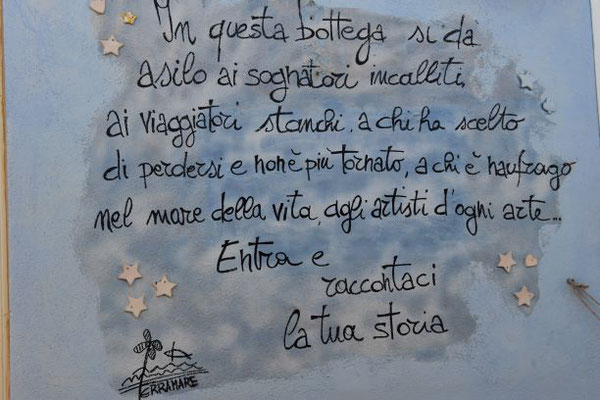 In questa bottega si da
asilo ai sognatori incalliti,
ai viaggiatori stanchi, a chi ha scelto
di perdersi e non è più tornato, a chi è naufrago
nel mare della vita, agli artisti d'ogni arte...
Entra e
raccontaci
la tua storia
TERRAMARE